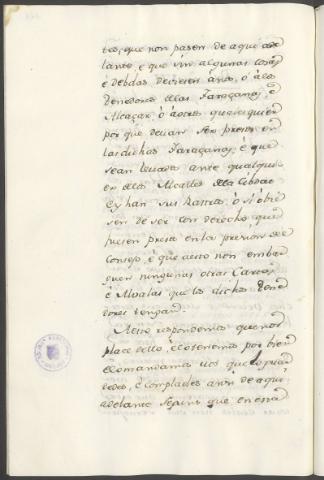 tes, que non pasen de aqui ade
lante, e que sin algunas cosas
é debdas devieren á nos, ó á los
tenedores de las Taraçanas, é
Alcaçar, ó á otros qualesquier
por que devan ser presos en
las dichas Taraçanas, é que
sean levados ante qualquie
de los Alcaldes de la Cibdad
é si ban
ser de ser con derecho que
fuesen presos en la prision del
Consejo, é que á esto non embar
guen ningunas otras Cartas
é Alvalas que los dichos
tengan.
A esto respondemos que nos
place dello, é otenemos por bien
é mandamos vos que lo guar
dedes, é complades ansi de aqui
adelante segun que en esta